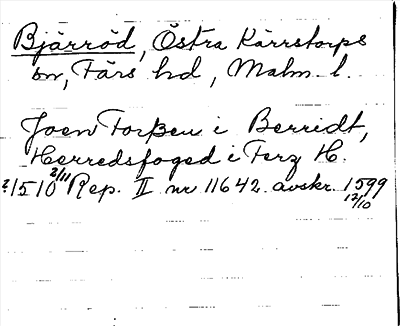 Bjärröd, Östra Kärrstorps
sn, Färs hd, Malm. l.
Joen Torßen i Berridt,
Herredsfoged i Ferz H.
?1510 2/11 Rep. II nr 11642. avskr. 1599 12/10